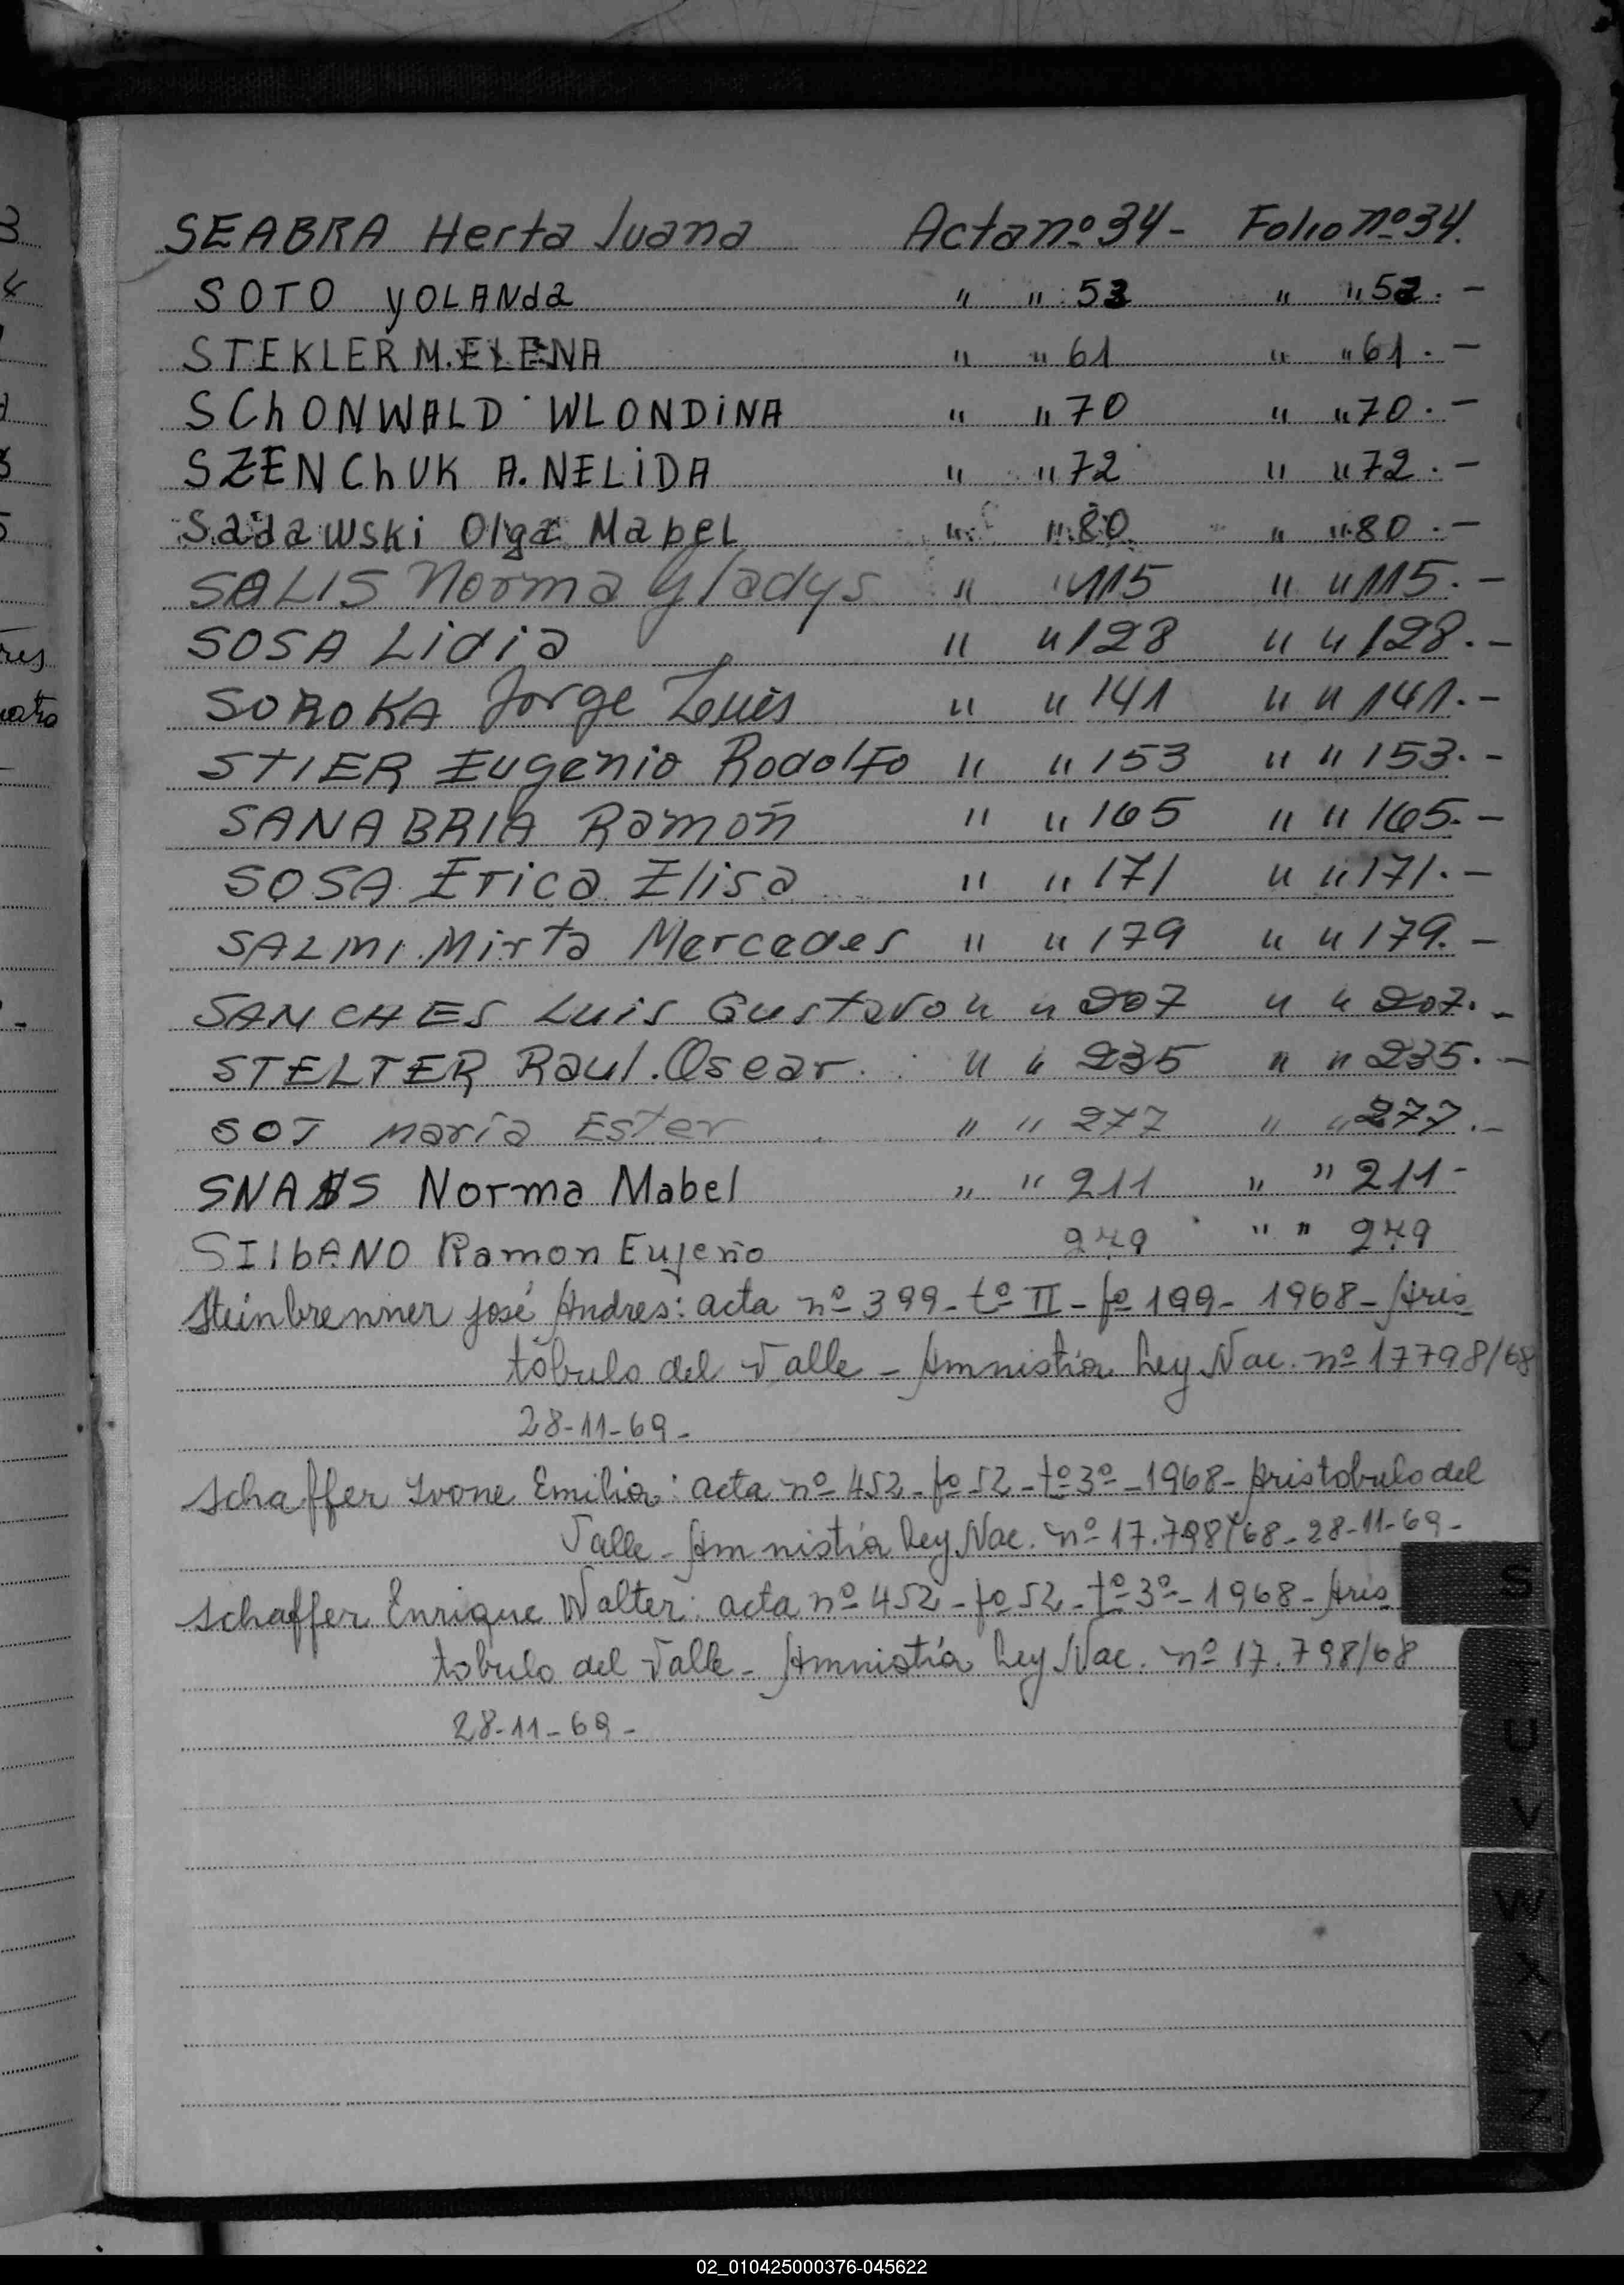 SEABRA Herta Juana Acta nº 34 - Folio nº 34.
SOTO YOLANda " " 53 " " 52. -
STEKLER M. ELENA " " 61 " " 61. -
SChONWALD WLONDINA " " 70 " " 70. -
SZENChUK A. NELiDA " " 72 " " 72. -
Sadawski Olga Mabel " " 80 " " 80. -
SALIS Norma Gladys " " 115 " " 115. -
SOSA Lidia " " 128 " " 128. -
SOROKA Jorge Luis " " 141 " " 141. -
STIER Eugenio Rodolfo " " 153 " " 153. -
SANABRIA Ramón " " 165 " " 165. -
SOSA Erica Elisa " " 171 " " 171. -
SALMI Mirta Mercedes " " 179 " " 179. -
SANCHES Luis Gustavo " " 207 " " 207. -
STELTER Raul Oscar " " 235 " " 235. -
SOT María Ester " " 277 " " 277. -
Norma Mabel " " 211 " " 211 -
SIlbANO Ramon Eugenio 249 " " 249
Steinbrenner José Andres: acta nº 399 - tº II - fº 199 - 1968 - Aris
tóbulo del Valle - Amnistía Ley Nac. nº 17798/68
28-11-69 -
Schaffer Ivone Emilia: acta nº 452 - fº 52 - tº 3º - 1968 - Aristobulo del
Valle - Amnistía Ley Nac. nº 17.798/68 - 28-11-69 -
Schaffer Enrique Walter: acta nº 452 - fº 52 - tº 3º - 1968 - Aris
tobulo del Valle - Amnistía Ley Nac. nº 17.798/68
28-11-69 -
S
U
V
W
X
Y
Z
02_010425000376-045622